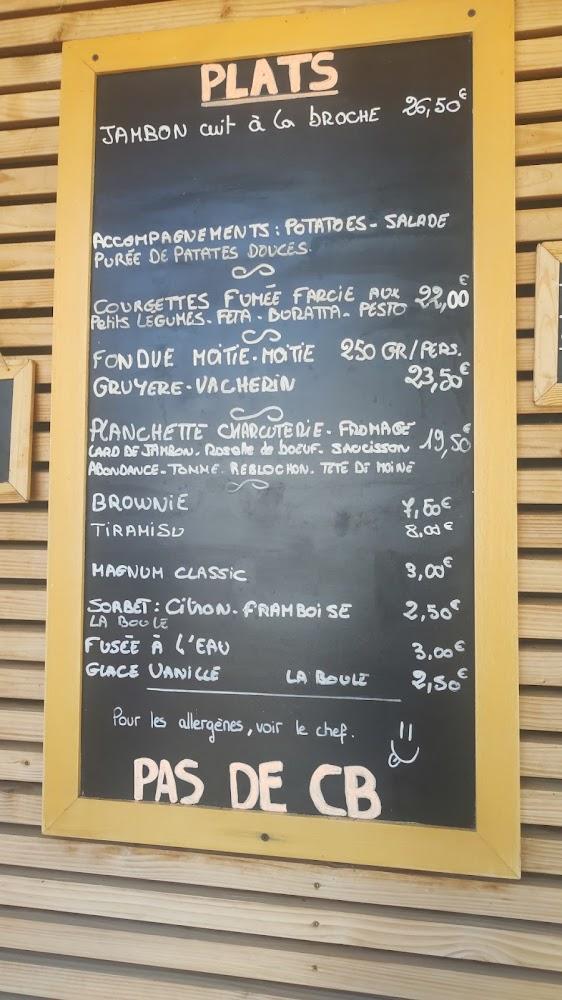 PLATS
JAMBON cuit à la BROCHE 26,50€
ACCOMPAGNEMENTS : POTATOES - SALADE
PURÉE DE PATATES DOUCES.
COURGETTES FUMÉE FARCIE AUX 22,00€
Petits LEGUMES - FETA - BURATTA - PESTO
FONDUE MOITIE-MOITIE 250 GR/PERS.
GRUYERE-VACHERIN 23,50€
PLANCHETTE CHARCUTERIE - FROMAGE 19,50€
LARD DE JAMBON. Rosette de boeuf. SAUCISSON
ABONDANCE - TOMME. REBLOCHON. TETE DE MOINE
BROWNIE 7,50€
TIRAMISU 8,00€
MAGNUM CLASSIC 3,00€
SORBET : Citron - FRAMBOISE 2,50€
LA BOULE
FUSÉE À L'EAU 3,00€
GLACE VANILLE LA BOULE 2,50€
Pour les allergènes, voir le chef.
PAS DE CB